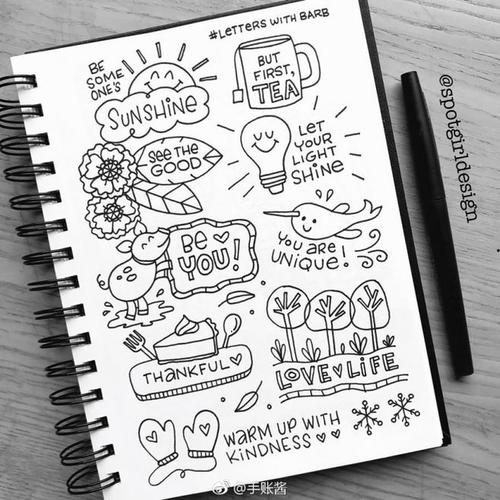 #LETTERS WITH BARB
BE
SOME
ONE'S
SUNSHINE
BUT
FIRST,
TEA
SEE THE
GOOD
LET
YOUR
LIGHT
SHINE
BE
YOU!
YOU ARE
UNIQUE!
THANKFUL
LOVE LIFE
WARM UP WITH
KINDNESS
@spotgirldesign
@手账酱